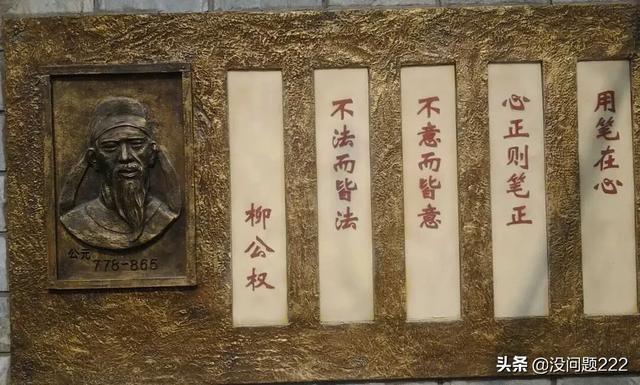 用笔在心
心正则笔正
不意而皆意
不法而皆法
柳公权
公元
778-865
头条 @没问题222